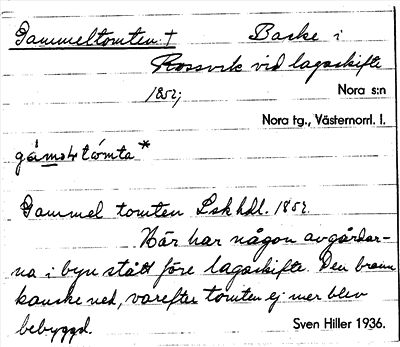 Gammeltomten † Backe i
Rossvik vid lagaskifte
1852; Nora s:n
Nora tg., Västernorrl. l.
tómta*
Gammel tomten Lskhdl. 1852.
Här har någon av gårdar-
na i byn stått före lagaskifte. Den brann
kanske ned, varefter tomten ej mer blev
bebyggd. Sven Hiller 1936.